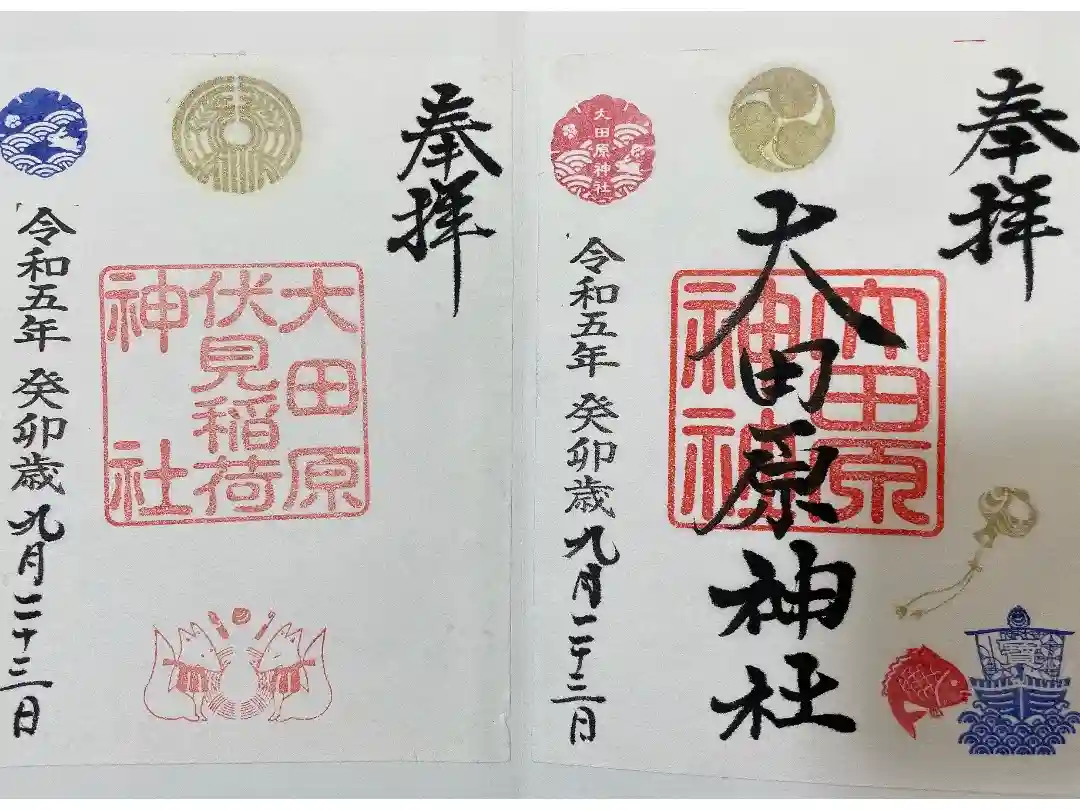 奉拝
大田原神社
大田原
神社
大田原神社
令和五年 癸卯歳 九月二十三日
奉拝
大田原
伏見稲荷
神社
令和五年 癸卯歳 九月二十三日